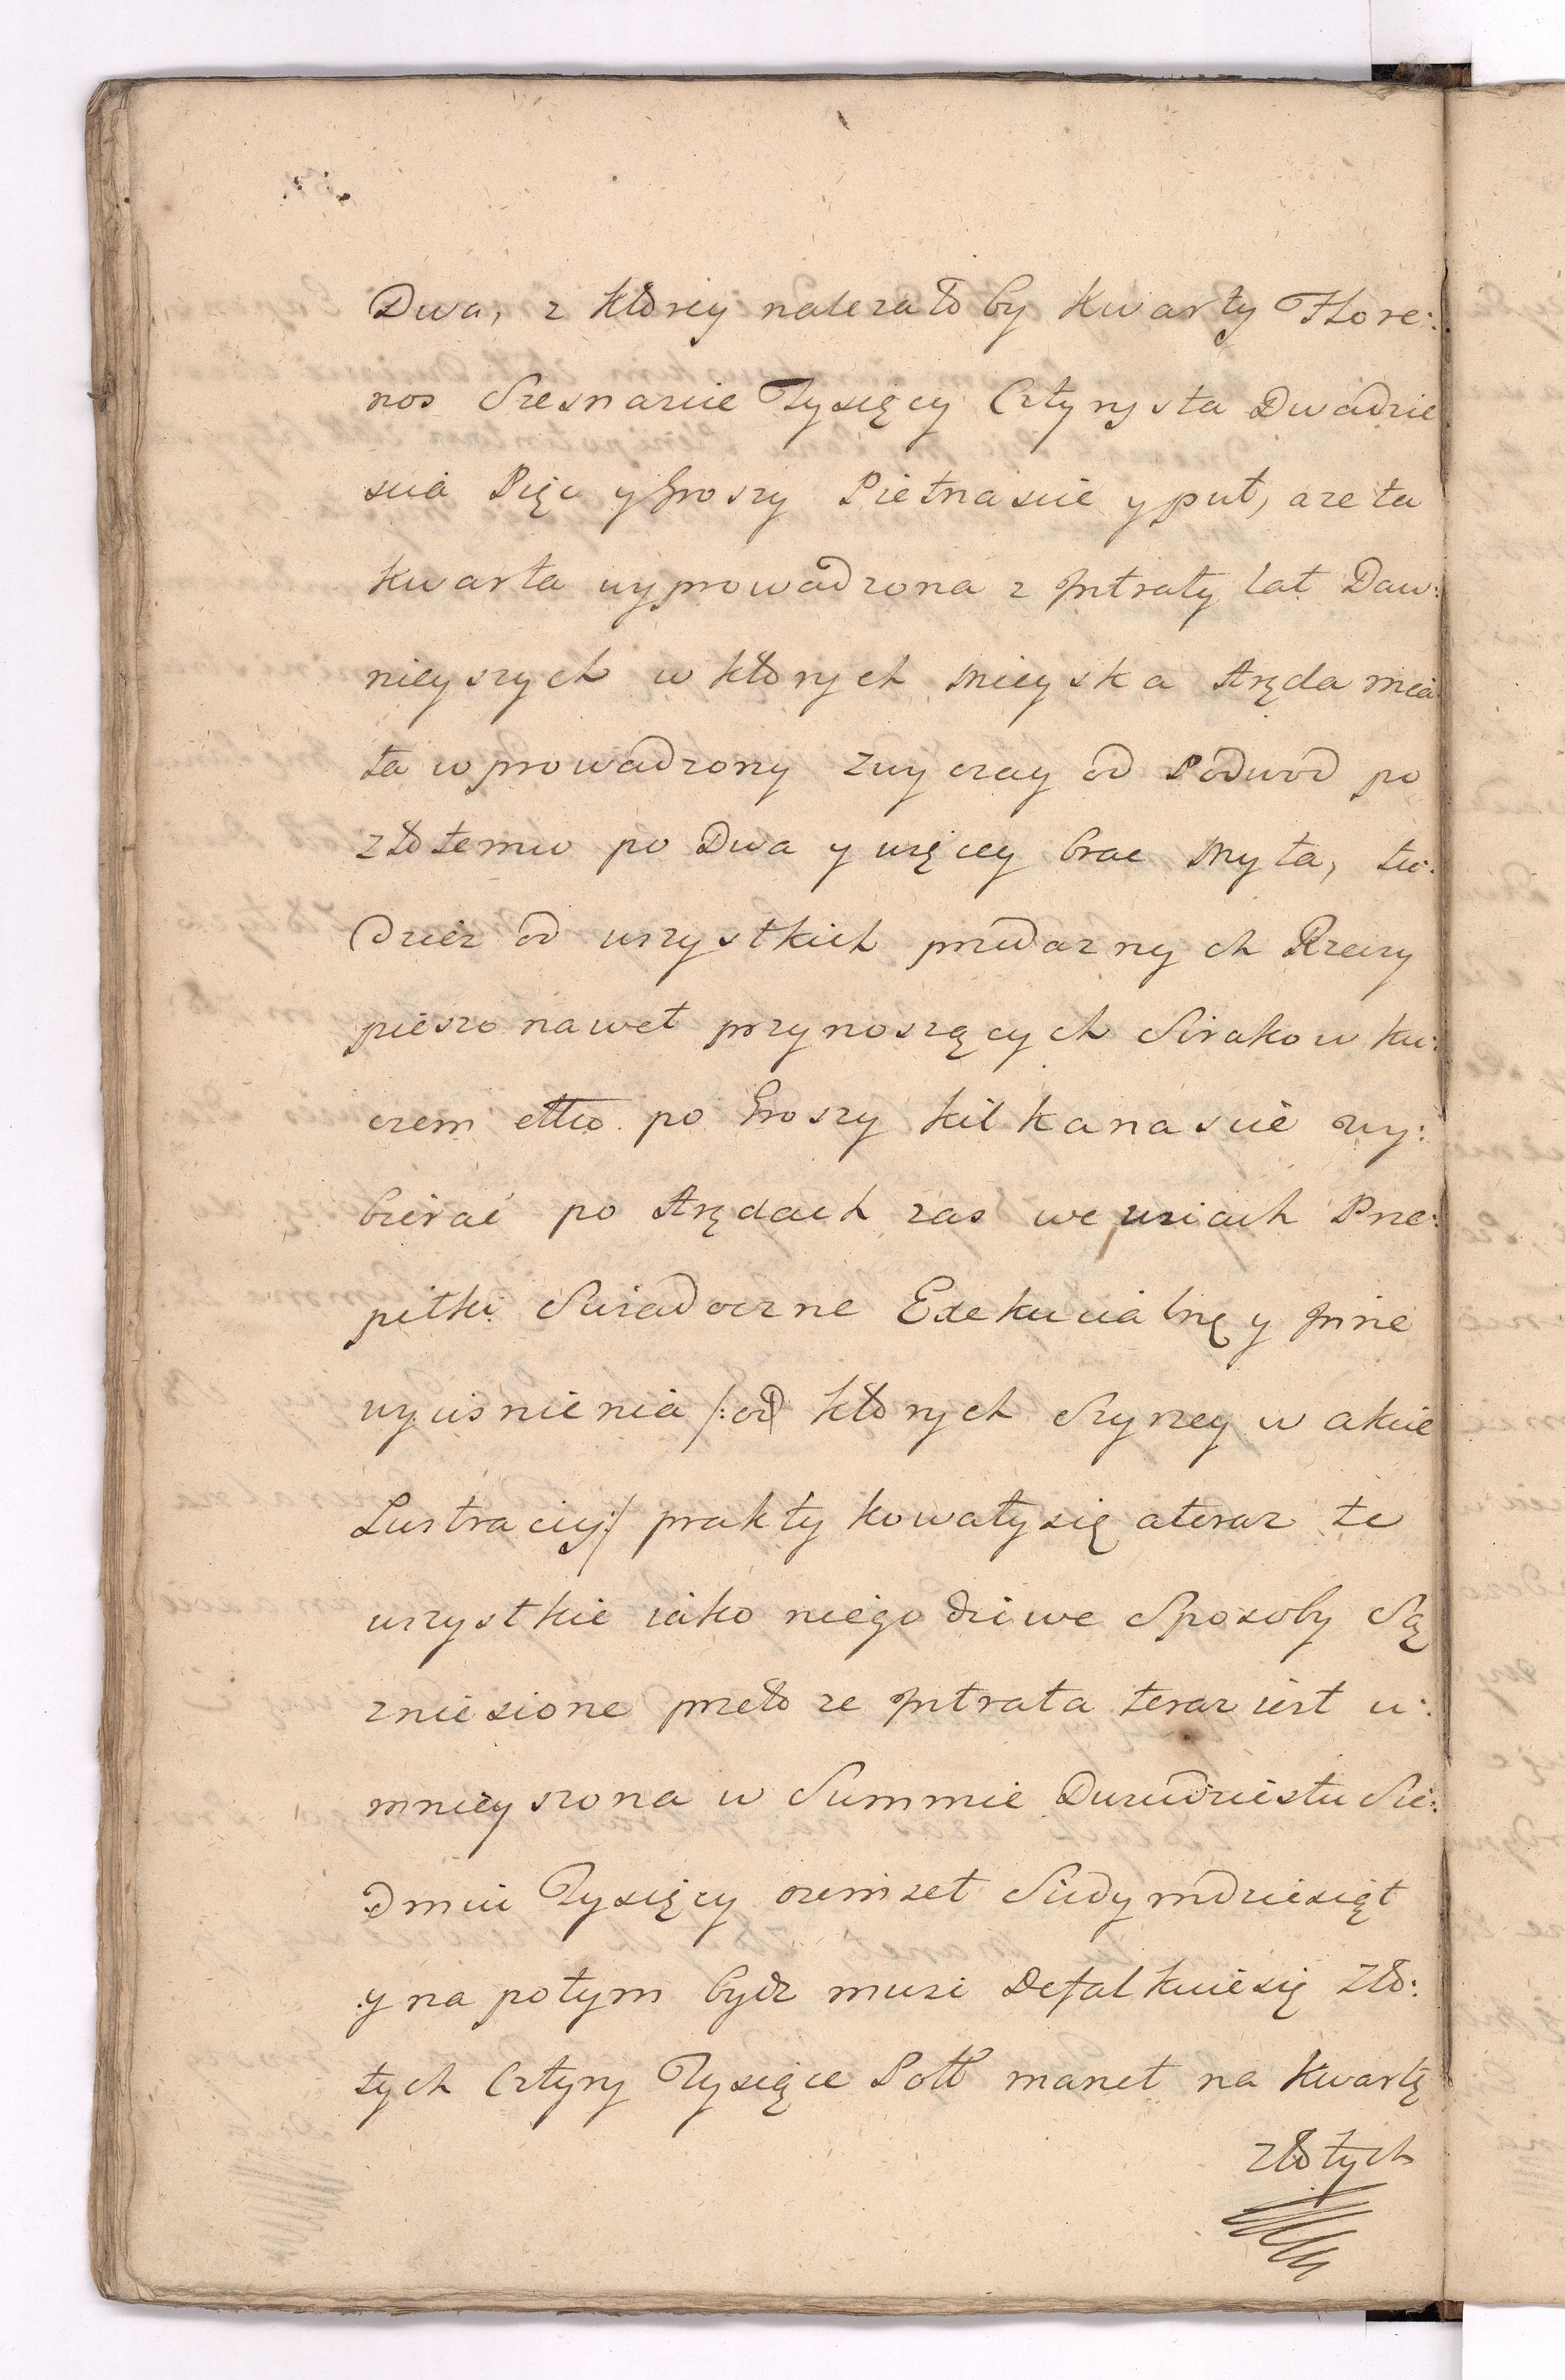 Dwa, z ktorey nalezałoby kwarty Flore:
nos Szesnascie Tysięcy Cztyrysta Dwadzie
scia Pięc y Groszy Pietnascie y puł, a ze ta
kwarta wyprowadzona z Jntraty lat Daw:
nieyszych w ktorych Mieyska Aręda mia
ła wprowadzony zwyczay od Podwod po
złotemu po Dwa y więcey brac Myta, tu:
dziez od wszystkich przedaznych Rzeczy
pieszo nawet przynoszących Sirakow ku:
czem etto. po Groszy kilkanascie wy:
bierać po Arędach zas we wsiach Prze:
pitki Swiadoczne Exekucialne y Jnne
wycisnienia /: od ktorych Szyrzey w akcie
Lustracyi :/ praktykowały się a teraz te
wszystkie iako niegodziwe Sposoby Są
zniesione przeto ze Jntrata teraz iest u:
mnieyszona w Summie Dwudziestu Sie:
dmiu Tysięcy ozemset Siedymdziesiąt
y na potym bydz musi Defalkuie się Zło:
tych Cztyry Tysiące Poll manet na kwartę
złotych